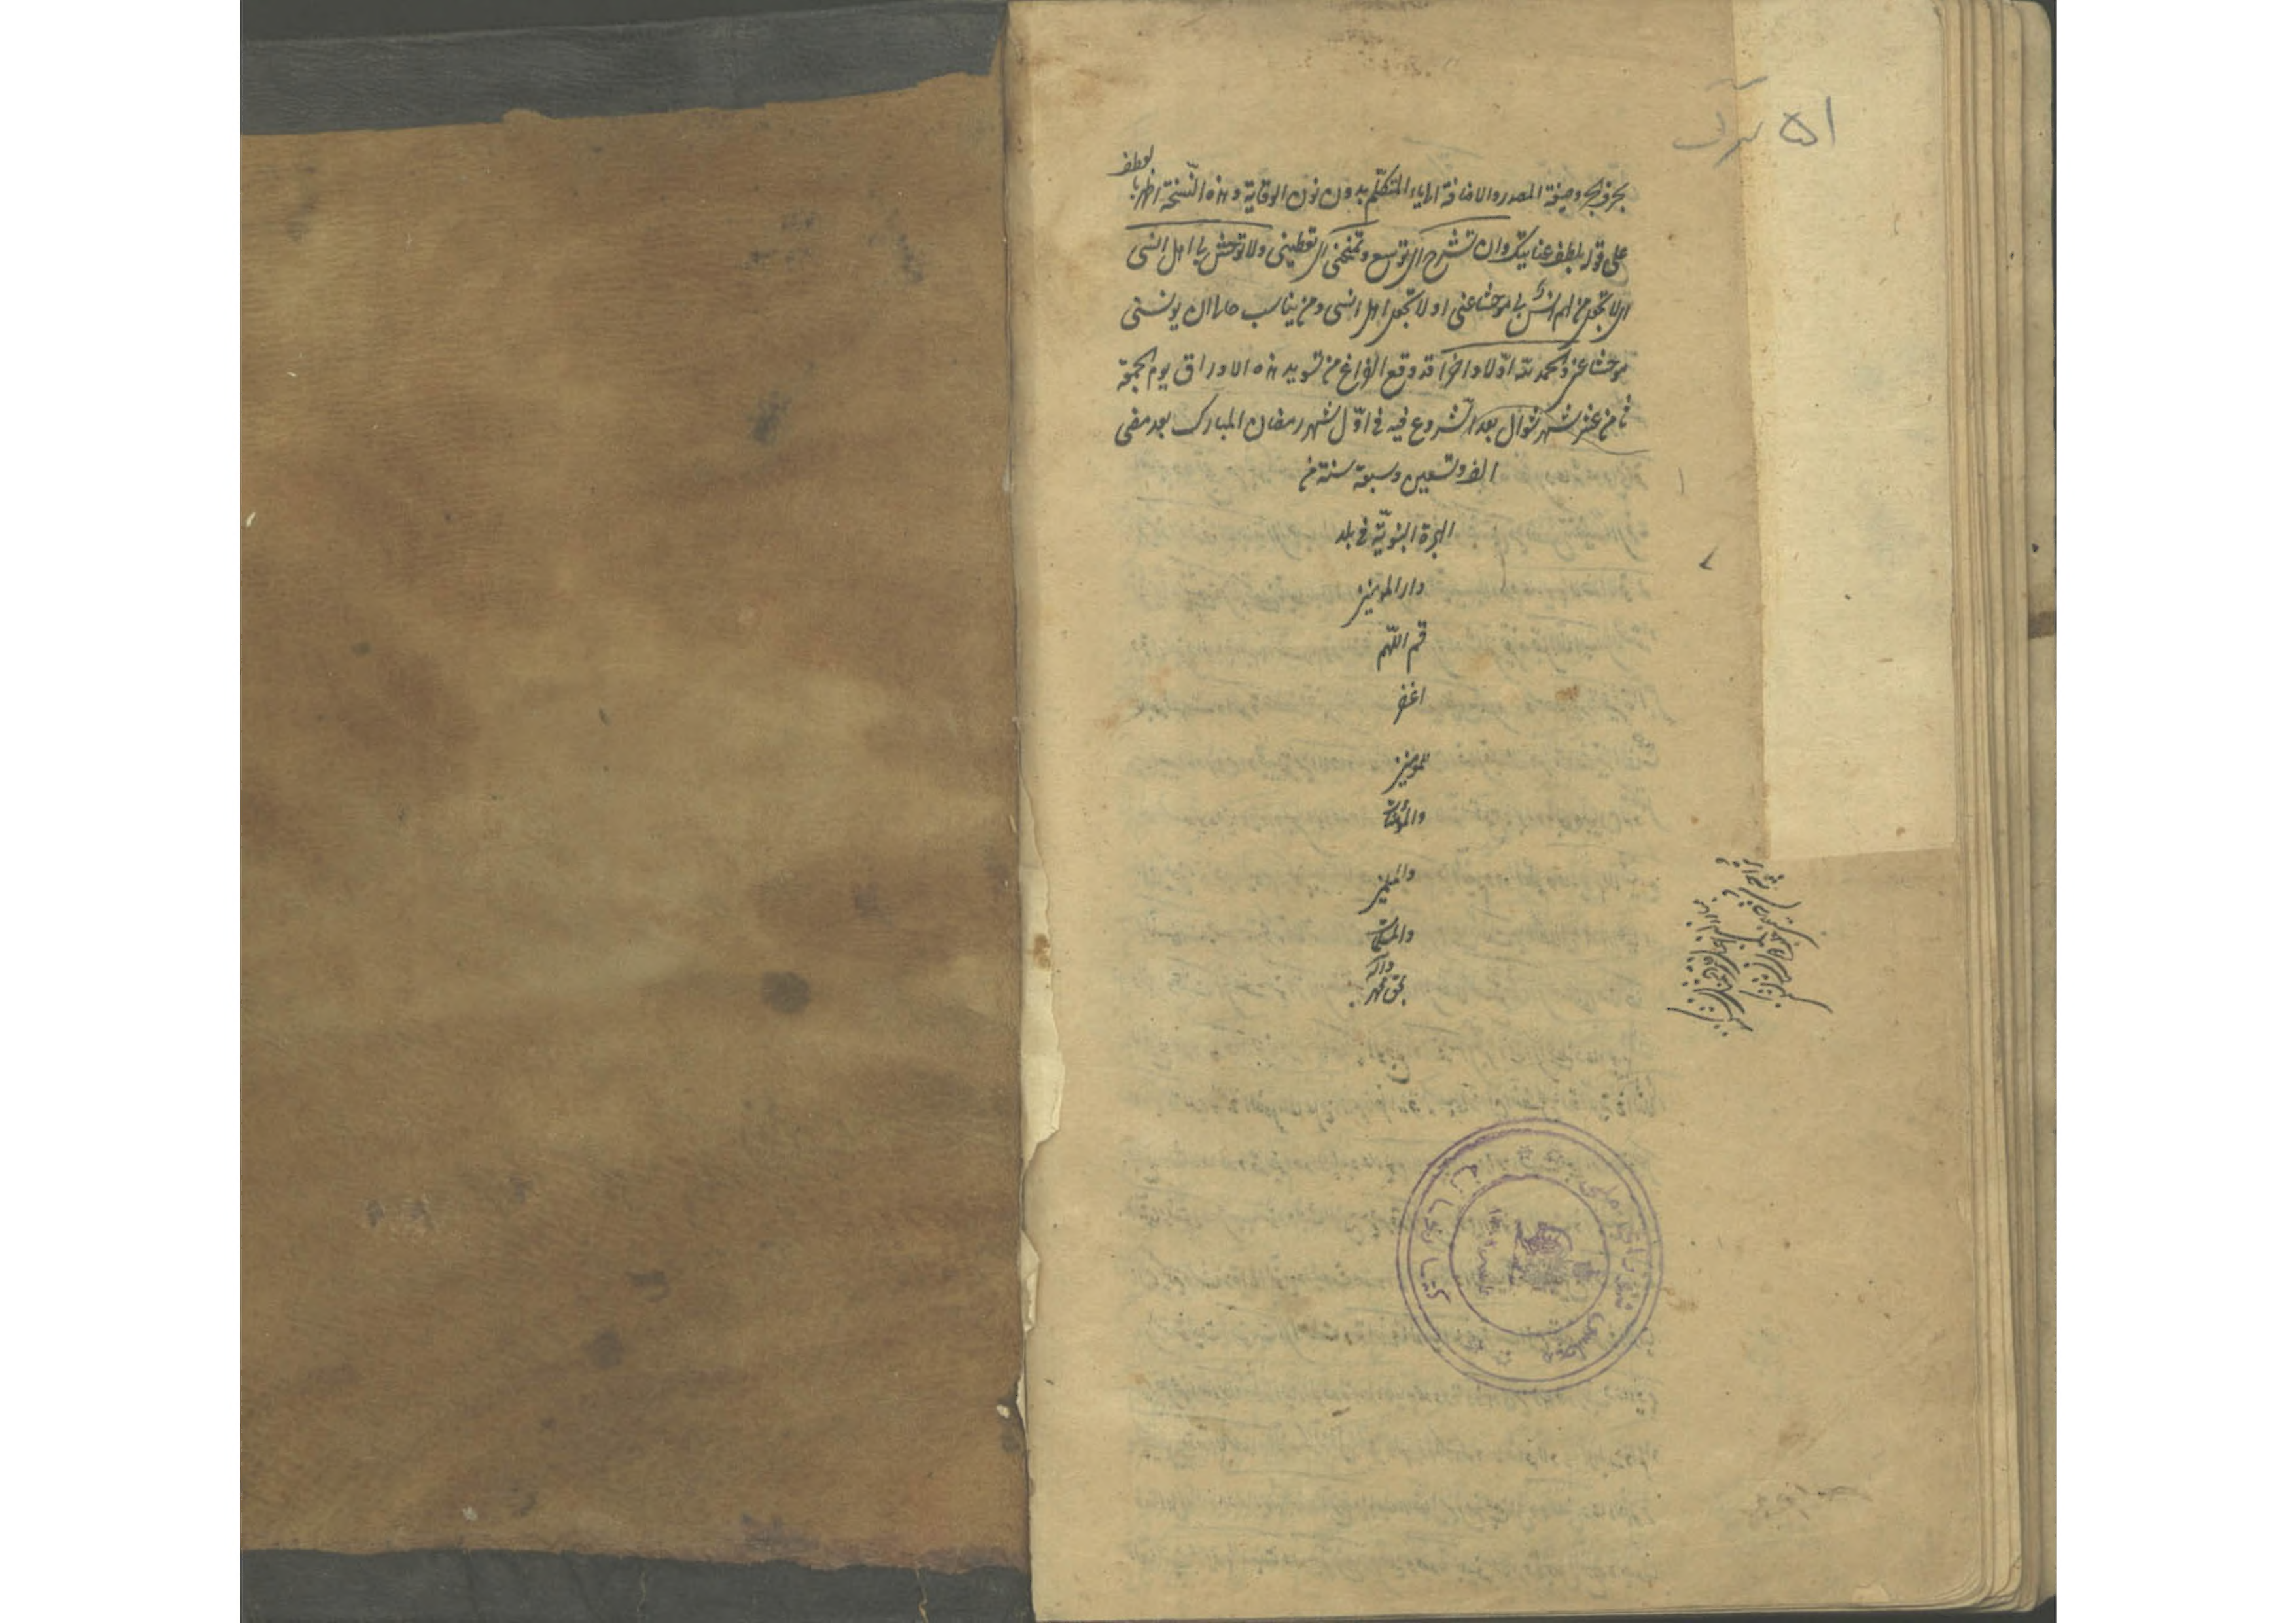 ۵۱ برگ
بحرف الجر وصیغة المصدر والاضافة الی یاء المتکلّم بدون نون الوقایة وهذه النّسخة اظهر بالعطف
علی قوله بلطف عنایتک وان تشرح ای توسع وتمنحنی ای تعطینی ولا توحش بی اهل انسی
ای لا تجعل من لهم انس بی موحشا عنی او لا تجعل اهل انسی ومن یناسب حاله ان یونسنی
موحشا عنی والحمد للّه اوّلا واخرا قد وقع الفراغ من تسوید هذه الاوراق یوم الجمعة
ثامن عشر شهر شوال بعد الشروع فیه فی اوّل شهر رمضان المبارک بعد مضی
الف وتسعین وسبعة سنة من
الهجرة النبویّة فی بلد
دار المومنین
قم اللّهم
اغفر
للمومنین
والمؤمنات
والمسلمین
والمسلمات
بحق محمد واله
کتابخانه مجلس شورای ملی